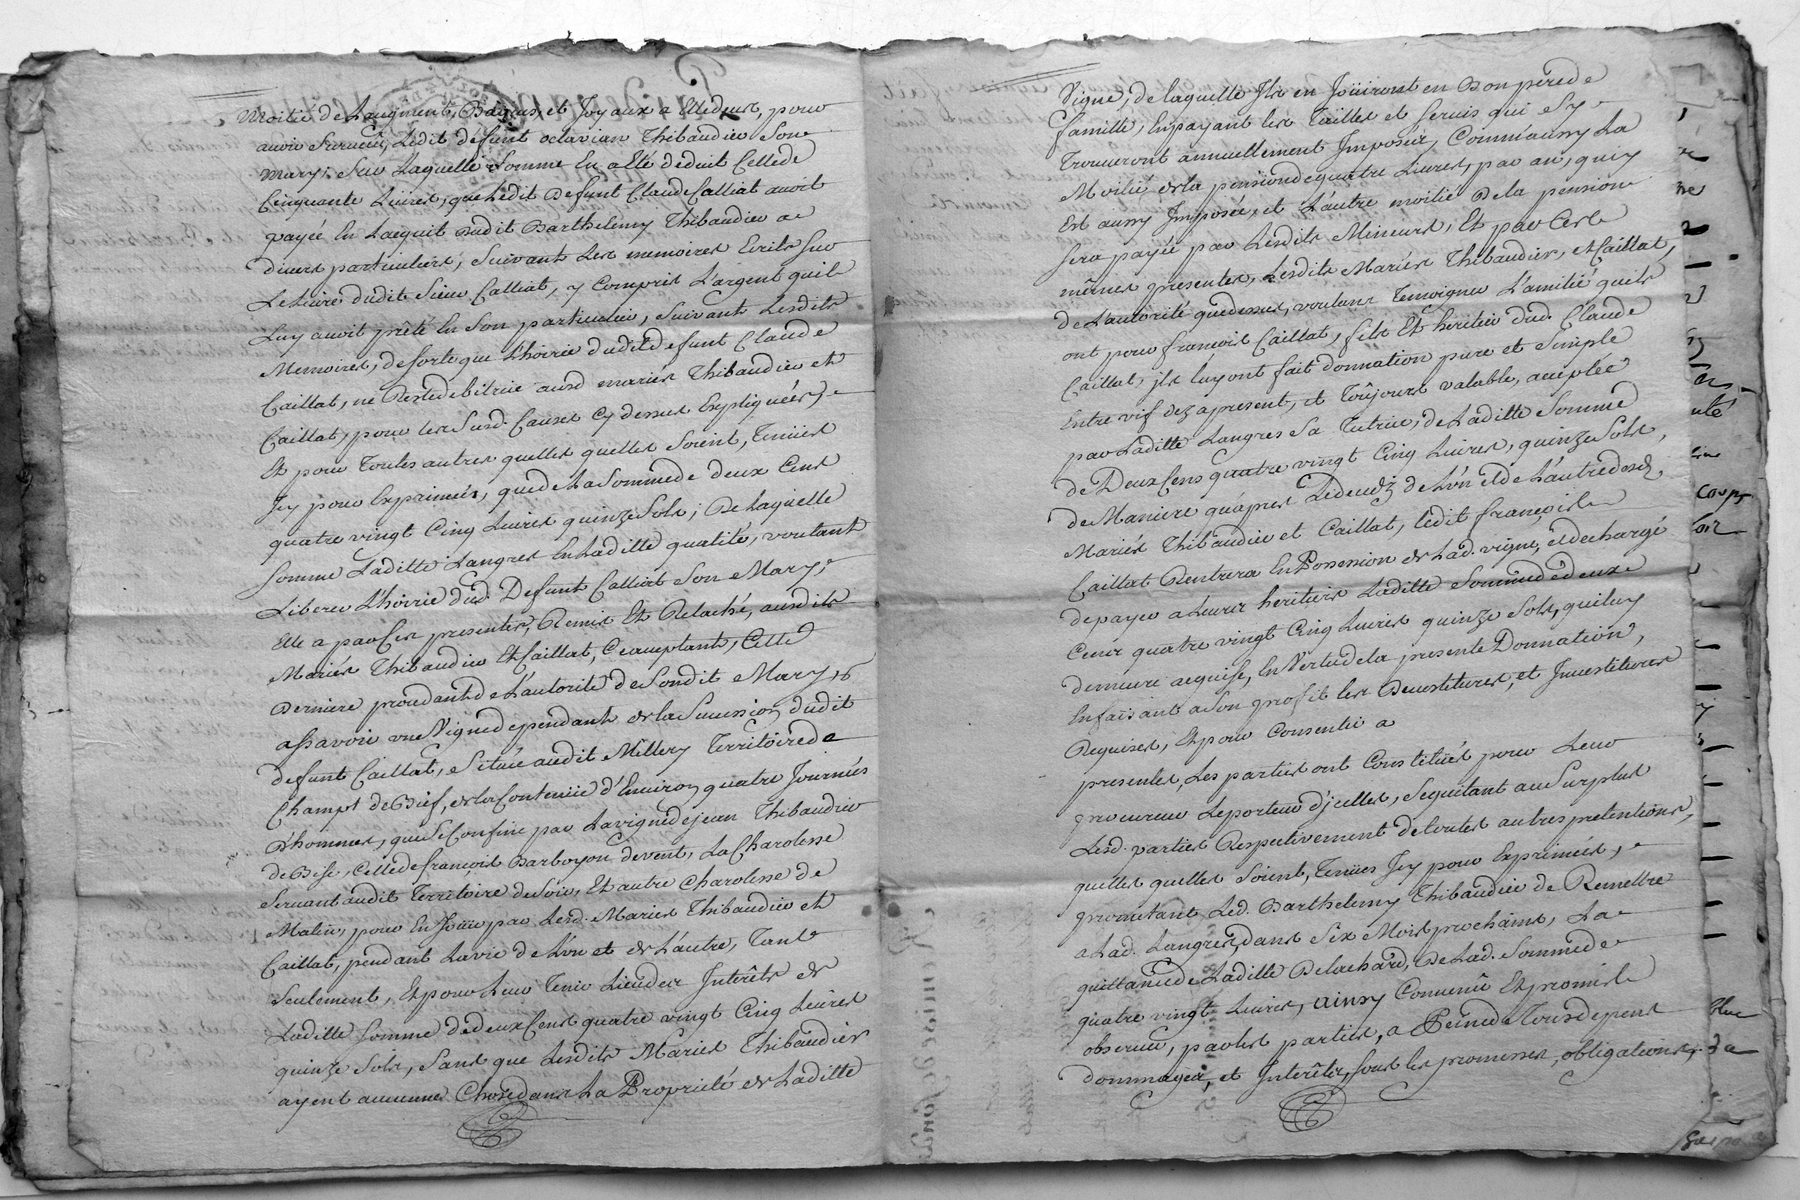 moitié de Laugment, Bagues, et Joyaux a Elle deus, pour
avoir survecu, Ledit defunt octavian Thibaudier son
mary, Sur Laquelle Somme En a Eté deduit Celle de
Cinquante Livres, que Ledit Defunt Claude Calliat avoit
payée En Lacquit dudit Barthelemy Thibaudier a
divers particuliers, suivant Les memoires Ecrits sur
Le Livre dudit Sieur Calliat, y Compris L'argent quil
Luy avoit prêté En son particulier, suivant Lesdits
Memoires, de sorte que L'hoirie dudit defunt Claude
Caillat, ne Reste debitrice ausd mariés Thibaudier et
Caillat, pour les Susd. Causes Cy dessus Expliquées,
Et pour Toutes autres quelles quelles soient, Tenües
Jcy pour Exprimées, que de La Somme de deux Cens
quatre vingt Cinq Livres quinze Sols, De Laquelle
somme Laditte Langres En Laditte qualité, voulant
Liberer L'hoirie dud Defunt Calliat Son Mary,
Elle a par ses presentes, Remis Et Relaché, ausdits
Mariés Thibaudier Et Caillat, Ce acceptants, Cette
Derniere procedant de L'autorité de Sondit Mary,
assavoir une Vigne dependante de la Succession dudit
defunt Caillat, Située audit Millery Territoire de
Champt de Bief, de la Contenüe d'Environ quatre Journées
d'hommes, qui Se Confine par La vigne de jean Thibaudier
de Bise, Celle de françois Barboyon de vent, La Charolesse
Servant audit Territoire de Soir, Et autre Charolesse de
Matin, pour En Joüir par Lesd. Mariés Thibaudier et
Caillat, pendant La vie de L'un et de L'autre, Tant
Seulement, Et pour Leur Tenir Lieu des Interêts de
Laditte Somme de deux Cens quatre vingt Cinq Livres
quinze Sols, Sans que Lesdits Mariés Thibaudier
ayent aucunne Chose dans La Proprieté de Laditte
Vigne, de laquelle Ils en Joüiront en Bon pére de
famille, En payant les Tailles et servis qui s'y
Trouveront annuellement Imposés, Comm'aussy La
Moitié de la pension de quatre Livres, par an, qui y
Est aussy Imposée, et L'autre moitié De la pension
sera payée par Lesdits Mineurs, Et par Ces
mêmes presentes, Lesdits Mariés Thibaudier, et Caillat,
de L'autorité que dessus, voulant Temoigner L'amitié quils
ont pour françois Caillat, fils Et heritier dud. Claude
Caillat, jls luy ont fait donnation pure et simple
Entre vif dez apresent, et Toûjours valable, acceptée
par Laditte Langres Sa Tutrice, de Laditte Somme
de Deux Cens quatre vingt Cinq Livres, quinze Sols,
de Maniere qu'après Le decedz de L'un et de L'autre desd.
Mariés Thibaudier et Caillat, ledit françois
Caillat Rentrera En Possession de Lad. vigne, et dechargé
de payer a Leurs heritiers Laditte Somme de deux
Cens quatre vingt Cinq Livres quinze Sols, qui luy
demeure acquise, En Vertu de la presente Donnation,
En faisant a Son profit les Devestitures, et Investitures
Requises, Et pour Consentir a
presentes, Les parties ont Constitüés pour Leur
procureur Le porteur d'jcelles, se quittant au Surplus
Lesd. parties Respectivement de toutes autres pretentions,
quelles quelles soient, Tenües Jcy pour Exprimées,
promettant Led. Barthelemy Thibaudier de Remettre
a Lad. Langres, dans Six Mois prochains, La
quittance de Laditte Delachard, De Lad. Somme de
quatre vingt Livres, ainsy Convenû Et promis
observer, par les parties, a Peine de Tous depens
dommages, et Interêts, sous les promesses, obligations,